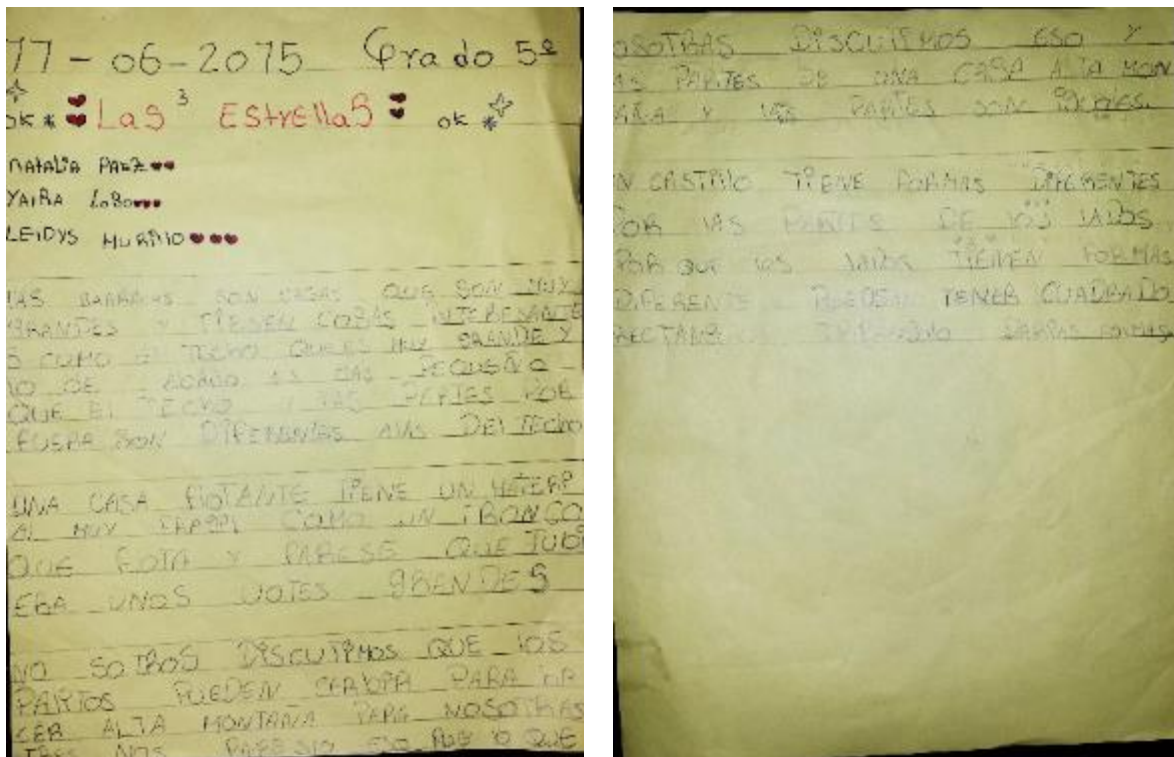 77-06-2075 Grado 5º
ok * Las 3 EstrellaS ok *
NATALIA PAEZ
YAIRA LOBO
LEIDYS MURILLO
SON CASAS QUE SON MUY
GRANDES Y TIENEN COSAS INTERESANTE
S COMO EL TECHO QUE ES MUY GRANDE Y
LO DE ES MAS PEQUEÑO
QUE EL TECHO PARTES POR
FUERA SON DIFERENTES DEL TECHO
UNA CASA FLOTANTE TIENE UN MATERI
AL MUY COMO UN TRONCO
QUE FOTA Y PARESE QUE
ERA UNOS VOTES GRANDES
NO SOTROS DISCUTIMOS QUE LOS
PUEDEN PARA
CER ALTA MONTAÑA PARA NOSOTRAS
TRES NOS PARESIO ESO QUE
OSOTRAS DISCUTIMOS ESO Y
AS PARTES DE UNA CASA ALTA MON
AÑA Y LAS PARTES SON
N CASTILLO TIENE FORMAS DIFERENTES
POR LAS PARTES DE LOS LADOS
POR QUE LOS LADOS TIENEN FORMAS
DIFERENTE PUEDEN TENER CUADRADO
RECTANG FORMAS